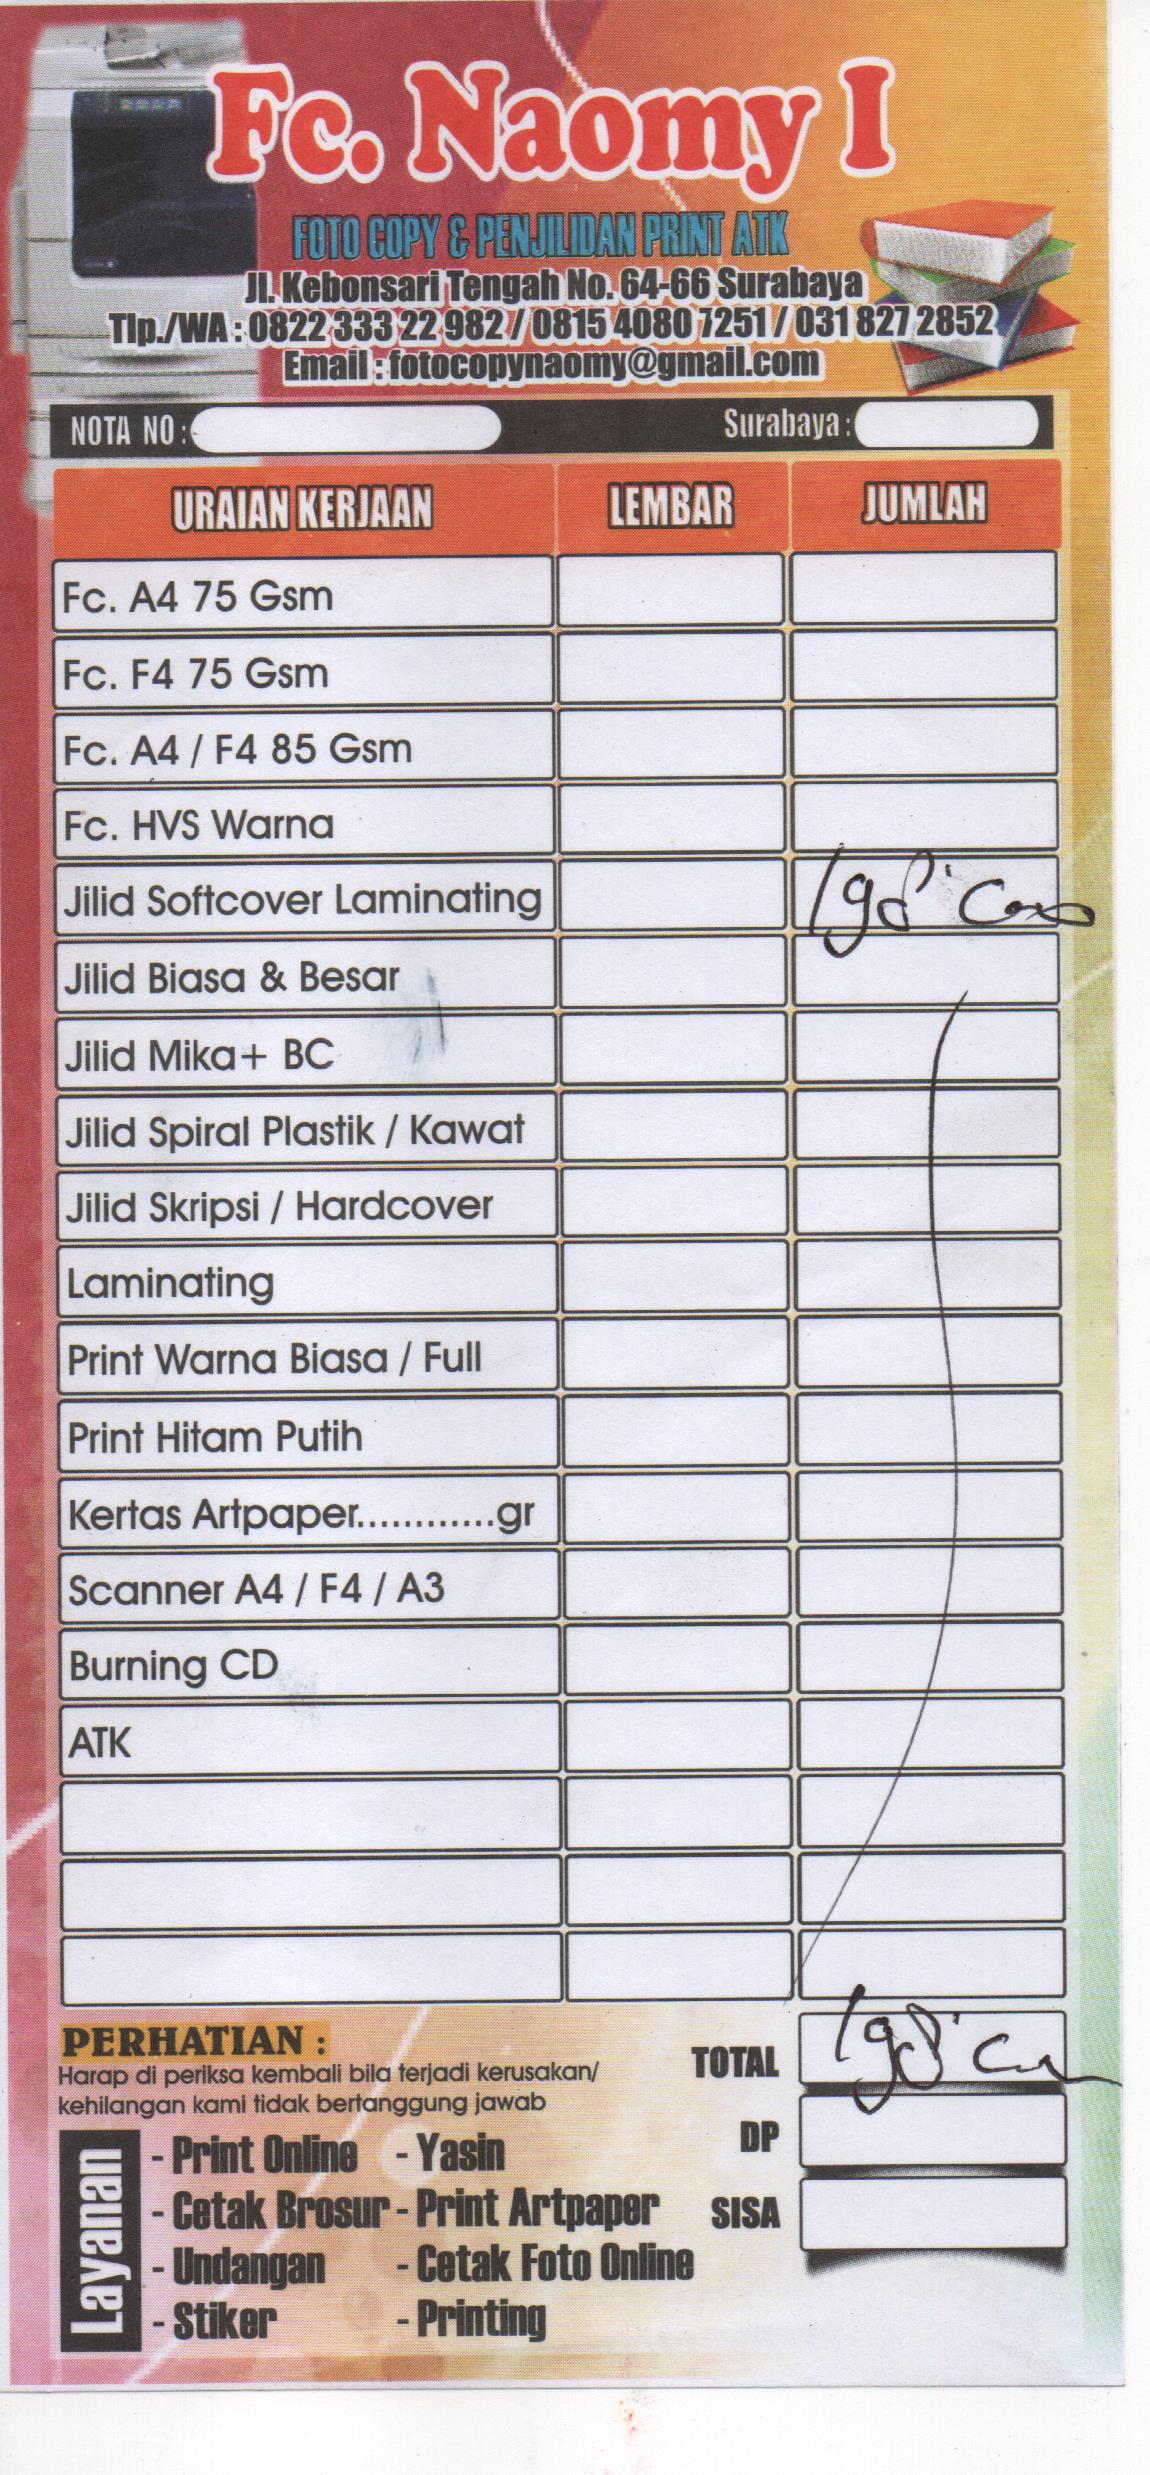 Fc. Naomy I
FOTO COPY & PENJILIDAN PRINT ATK
Jl. Kebonsari Tengah No. 64-66 Surabaya
Tlp./WA : 0822 333 22 982 / 0815 4080 7251 / 031 827 2852
Email : fotocopynaomy@gmail.com
NOTA NO : Surabaya :
URAIAN KERJAAN LEMBAR JUMLAH
Fc. A4 75 Gsm
Fc. F4 75 Gsm
Fc. A4 / F4 85 Gsm
Fc. HVS Warna
Jilid Softcover Laminating 198
Jilid Biasa & Besar
Jilid Mika+ BC
Jilid Spiral Plastik / Kawat
Jilid Skripsi / Hardcover
Laminating
Print Warna Biasa / Full
Print Hitam Putih
Kertas Artpaper............gr
Scanner A4 / F4 / A3
Burning CD
ATK
PERHATIAN :
Harap di periksa kembali bila terjadi kerusakan/
kehilangan kami tidak bertanggung jawab
TOTAL 198
DP
SISA
Layanan
- Print Online - Yasin
- Cetak Brosur - Print Artpaper
- Undangan - Cetak Foto Online
- Stiker - Printing